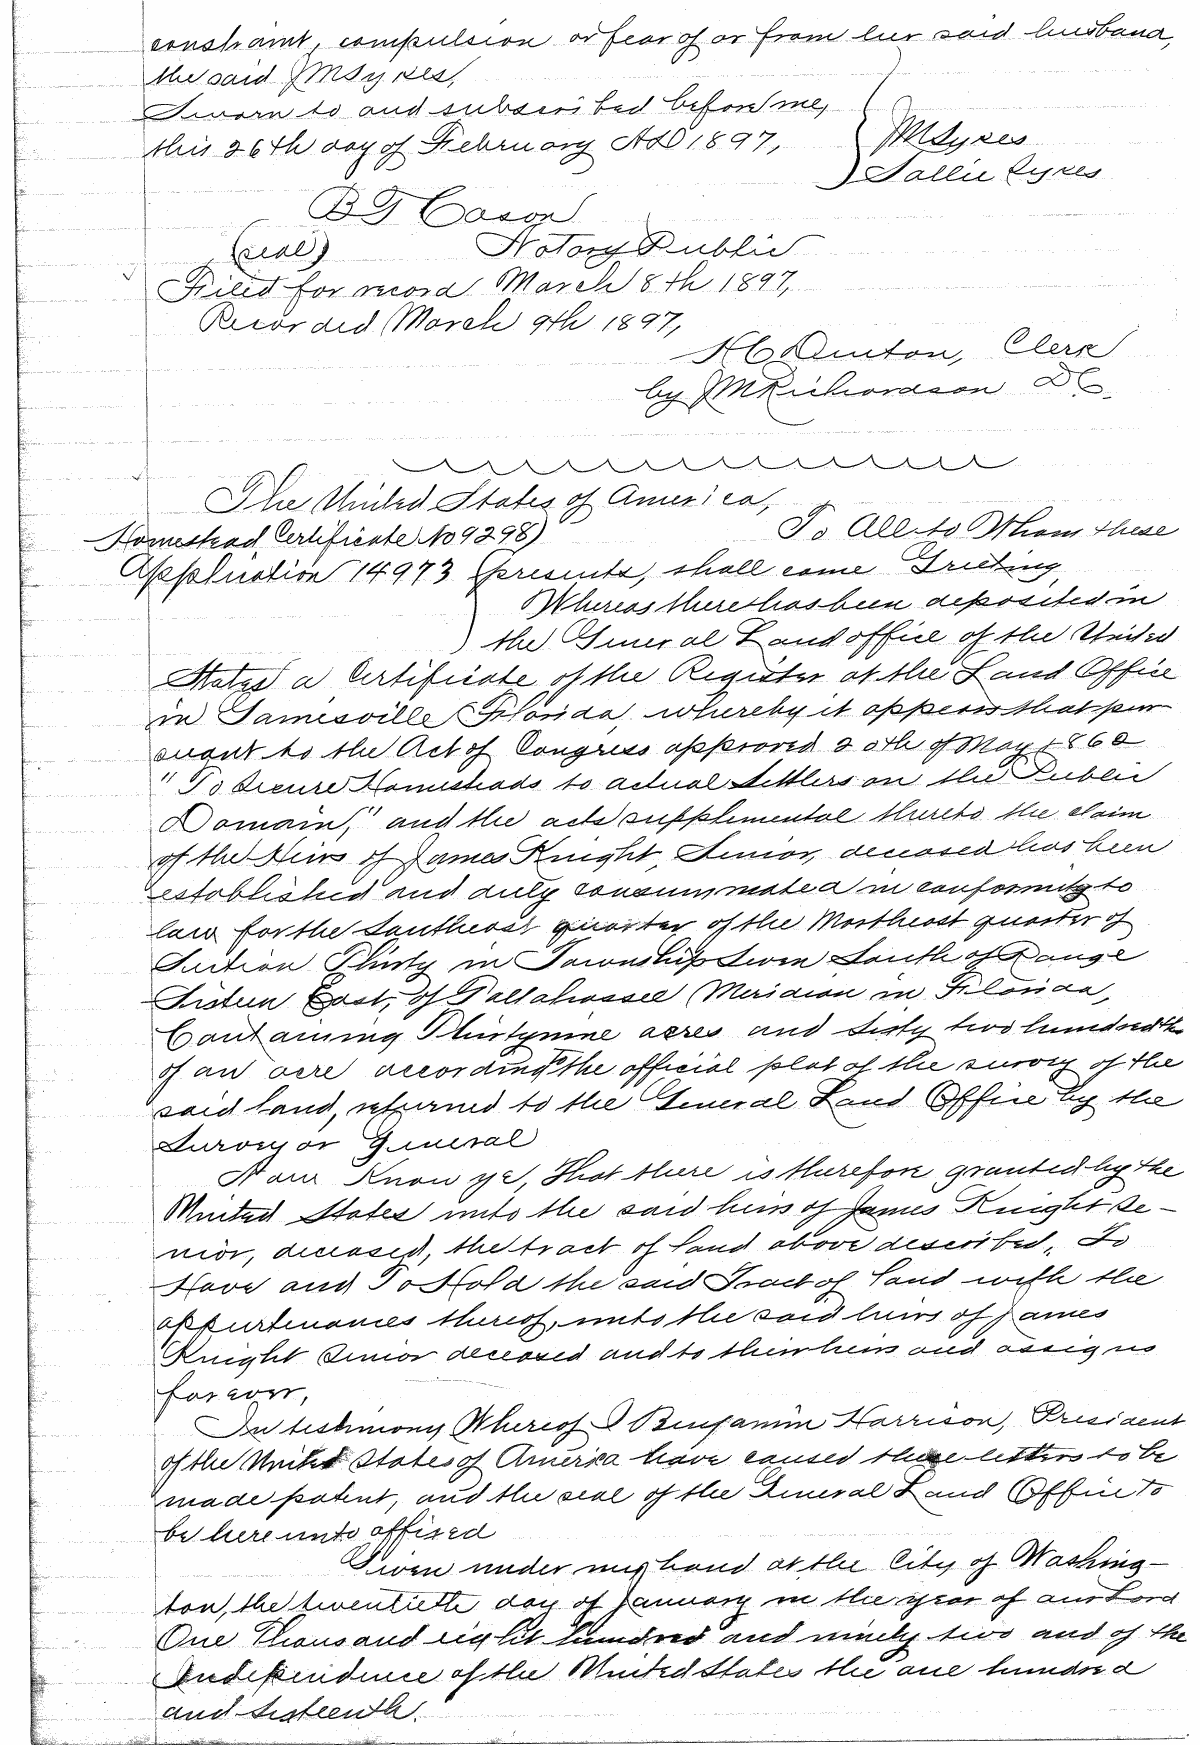 constraint, compulsion or fear of or from her said husband,
the said J M Sykes,
Sworn to and subscribed before me,
this 26th day of February AD 1897,
J M Sykes
Sallie Sykes
B G Cason
(seal) Notary Public
Filed for record March 8th 1897,
Recorded March 9th 1897,
H C Denton, Clerk
by J M Richardson D C.
The United States of America,
Homestead Certificate No 9298) To All to Whom these
Application 14973 presents, shall come Greeting
Whereas there has been deposited in
) the General Land office of the United
States a Certificate of the Register at the Land Office
in Gainesville Florida, whereby it appears that pur
suant to the Act of Congress approved 20th of May 1862
"To Secure Homesteads to actual Settlers on the Public
Domain," and the acts supplemental thereto the claim
of the Heirs of James Knight, Senior, deceased has been
established and duly consummated in conformity to
law for the Southeast quarter of the Northeast quarter of
Section Thirty in Township Seven South of Range
Sixteen East, of Tallahassee Meridian in Florida,
Containing Thirtynine acres and sixty two hundredths
of an acre according to the official plat of the survey of the
said land, returned to the General Land Office by the
Surveyor General
Now Know ye, That there is therefore granted by the
United States unto the said heirs of James Knight Se-
nior, deceased, the tract of land above described, To
Have and To Hold the said Tract of land with the
appurtenances thereof, unto the said heirs of James
Knight Senior deceased and to their heirs and assigns
forever,
In testimony Whereof I Benjamin Harrison, President
of the United States of America have caused these letters to be
made patent, and the seal of the General Land Office to
be here unto affixed
Given under my hand at the City of Washing-
ton, the twentieth day of January in the year of our Lord
One Thousand eight hundred and ninety two and of the
Independence of the United States the one hundred
and sixteenth.